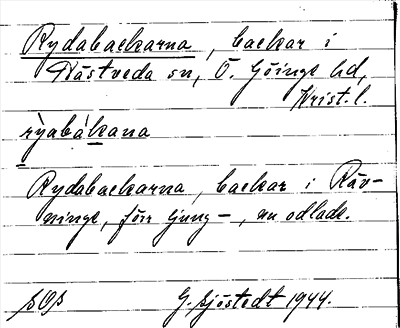 Rydabackarna, backar i
Nästveda sn, Ö. Göinge hd,
Krist. l.
rỳabákana
Rydabackarna, backar i Räv-
ninge, förr ljung-, nu odlade.
SOS
G. Sjöstedt 1944.